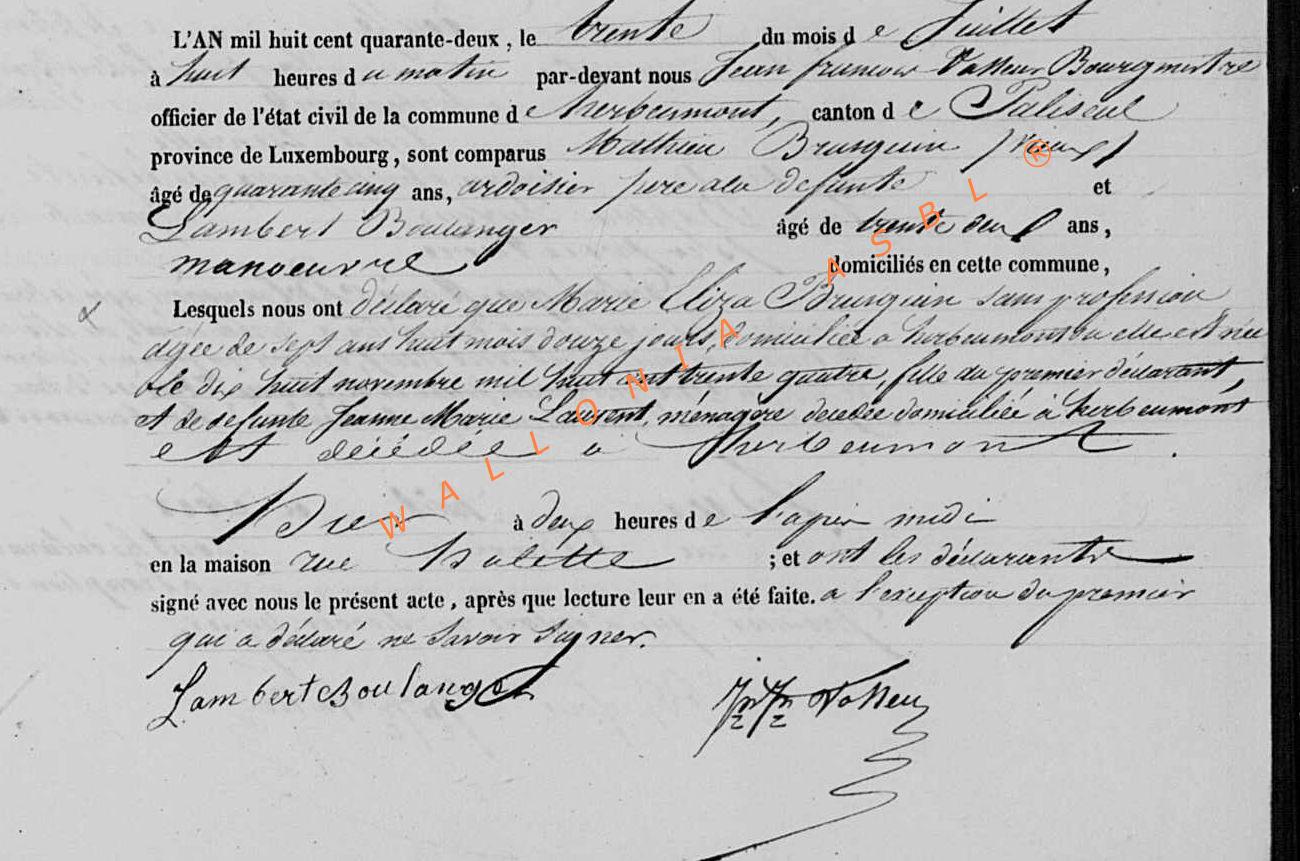 L'AN mil huit cent quarante-deux, le trente du mois de Juillet
à huit heures du matin par-devant nous Jean françois Vasseur Bourgmestre
officier de l'état civil de la commune de herbeumont, canton de Paliseul
province de Luxembourg, sont comparus Mathieu Brusquin (vieux)
âgé de quarante cinq ans, ardoisier pere a la defunte et
Lambert Boulanger âgé de trente deux ans,
manoeuvre domiciliés en cette commune,
Lesquels nous ont déclaré que Marie Eliza Brusquin sans profession
agée de sept ans huit mois douze jours, domiciliée a herbeumont ou elle est née
le dix huit novembre mil huit cent trente quatre, fille du premier déclarant,
et de defunte Jeanne Marie Laurent, ménagère decedée domiciliée à herbeumont
est décédée a herbeumont.
hier à deux heures de l'apres midi
en la maison rue ; et ont les déclarants
signé avec nous le présent acte, après que lecture leur en a été faite. a l'exception du premier
qui a déclaré ne savoir signer.
Lambert Boulanger Vasseur
WALLONIA ASBL ®